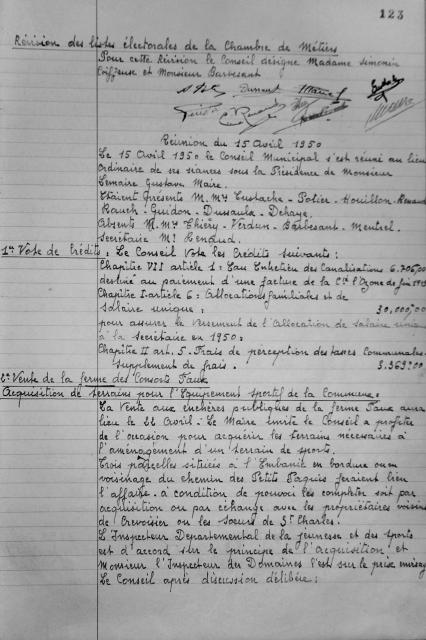 123
Révision des listes électorales de la Chambre de Métiers
Pour cette Révision le Conseil désigne Madame Simonin
Coiffeuse et Monsieur Barbesant
Réunion du 15 Avril 1950
Le 15 Avril 1950 le Conseil Municipal s'est réuni au lieu
Ordinaire de ses séances sous la Présidence de Monsieur
Lemaire Gustave Maire.
Etaient présents M. Mrs Eustache - Potier - Houillon - Renaud
Rauch - Guidon - Dussaula - Dehaye.
Absents M. Mrs Thiéry - Verdun - Barbesant - Mentrel.
Secrétaire Mr Renaud.
1° Vote de Crédits : Le Conseil Vote les Crédits suivants :
Chapitre VII article 1 : Eau Entretien des Canalisations 6.706,00
destiné au paiement d'une facture de la Cie l'Ozone de Juin
Chapitre I article 6 : Allocations familiales et de
salaire unique : 30.000,00
pour assurer le versement de l'Allocation de salaire unique
à la Secrétaire en 1950 :
Chapitre II art. 5. Frais de perception des taxes Communales
supplément de frais . 3.369,00
2° Vente de la ferme des Consorts Faux
Acquisition de terrains pour l'Equipement sportif de la Commune :
La Vente aux enchères publiques de la ferme Faux aura
lieu le 22 Avril - Le Maire invite le Conseil à profiter
de l'occasion pour acquérir les terrains nécessaires à
l'aménagement d'un terrain de sports.
Trois parcelles situées à l'Embanie en bordure ou au
voisinage du chemin des Petits Paquis feraient bien
l'affaire - à condition de pouvoir les compléter soit par
acquisition ou par échange avec les propriétaires voisins
de Crevoisier ou les Sœurs de St Charles.
L'Inspecteur Départemental de la jeunesse et des sports
est d'accord sur le principe de l'acquisition et
Monsieur l'Inspecteur des Domaines l'est sur le prix envisagé
Le Conseil après discussion délibère :